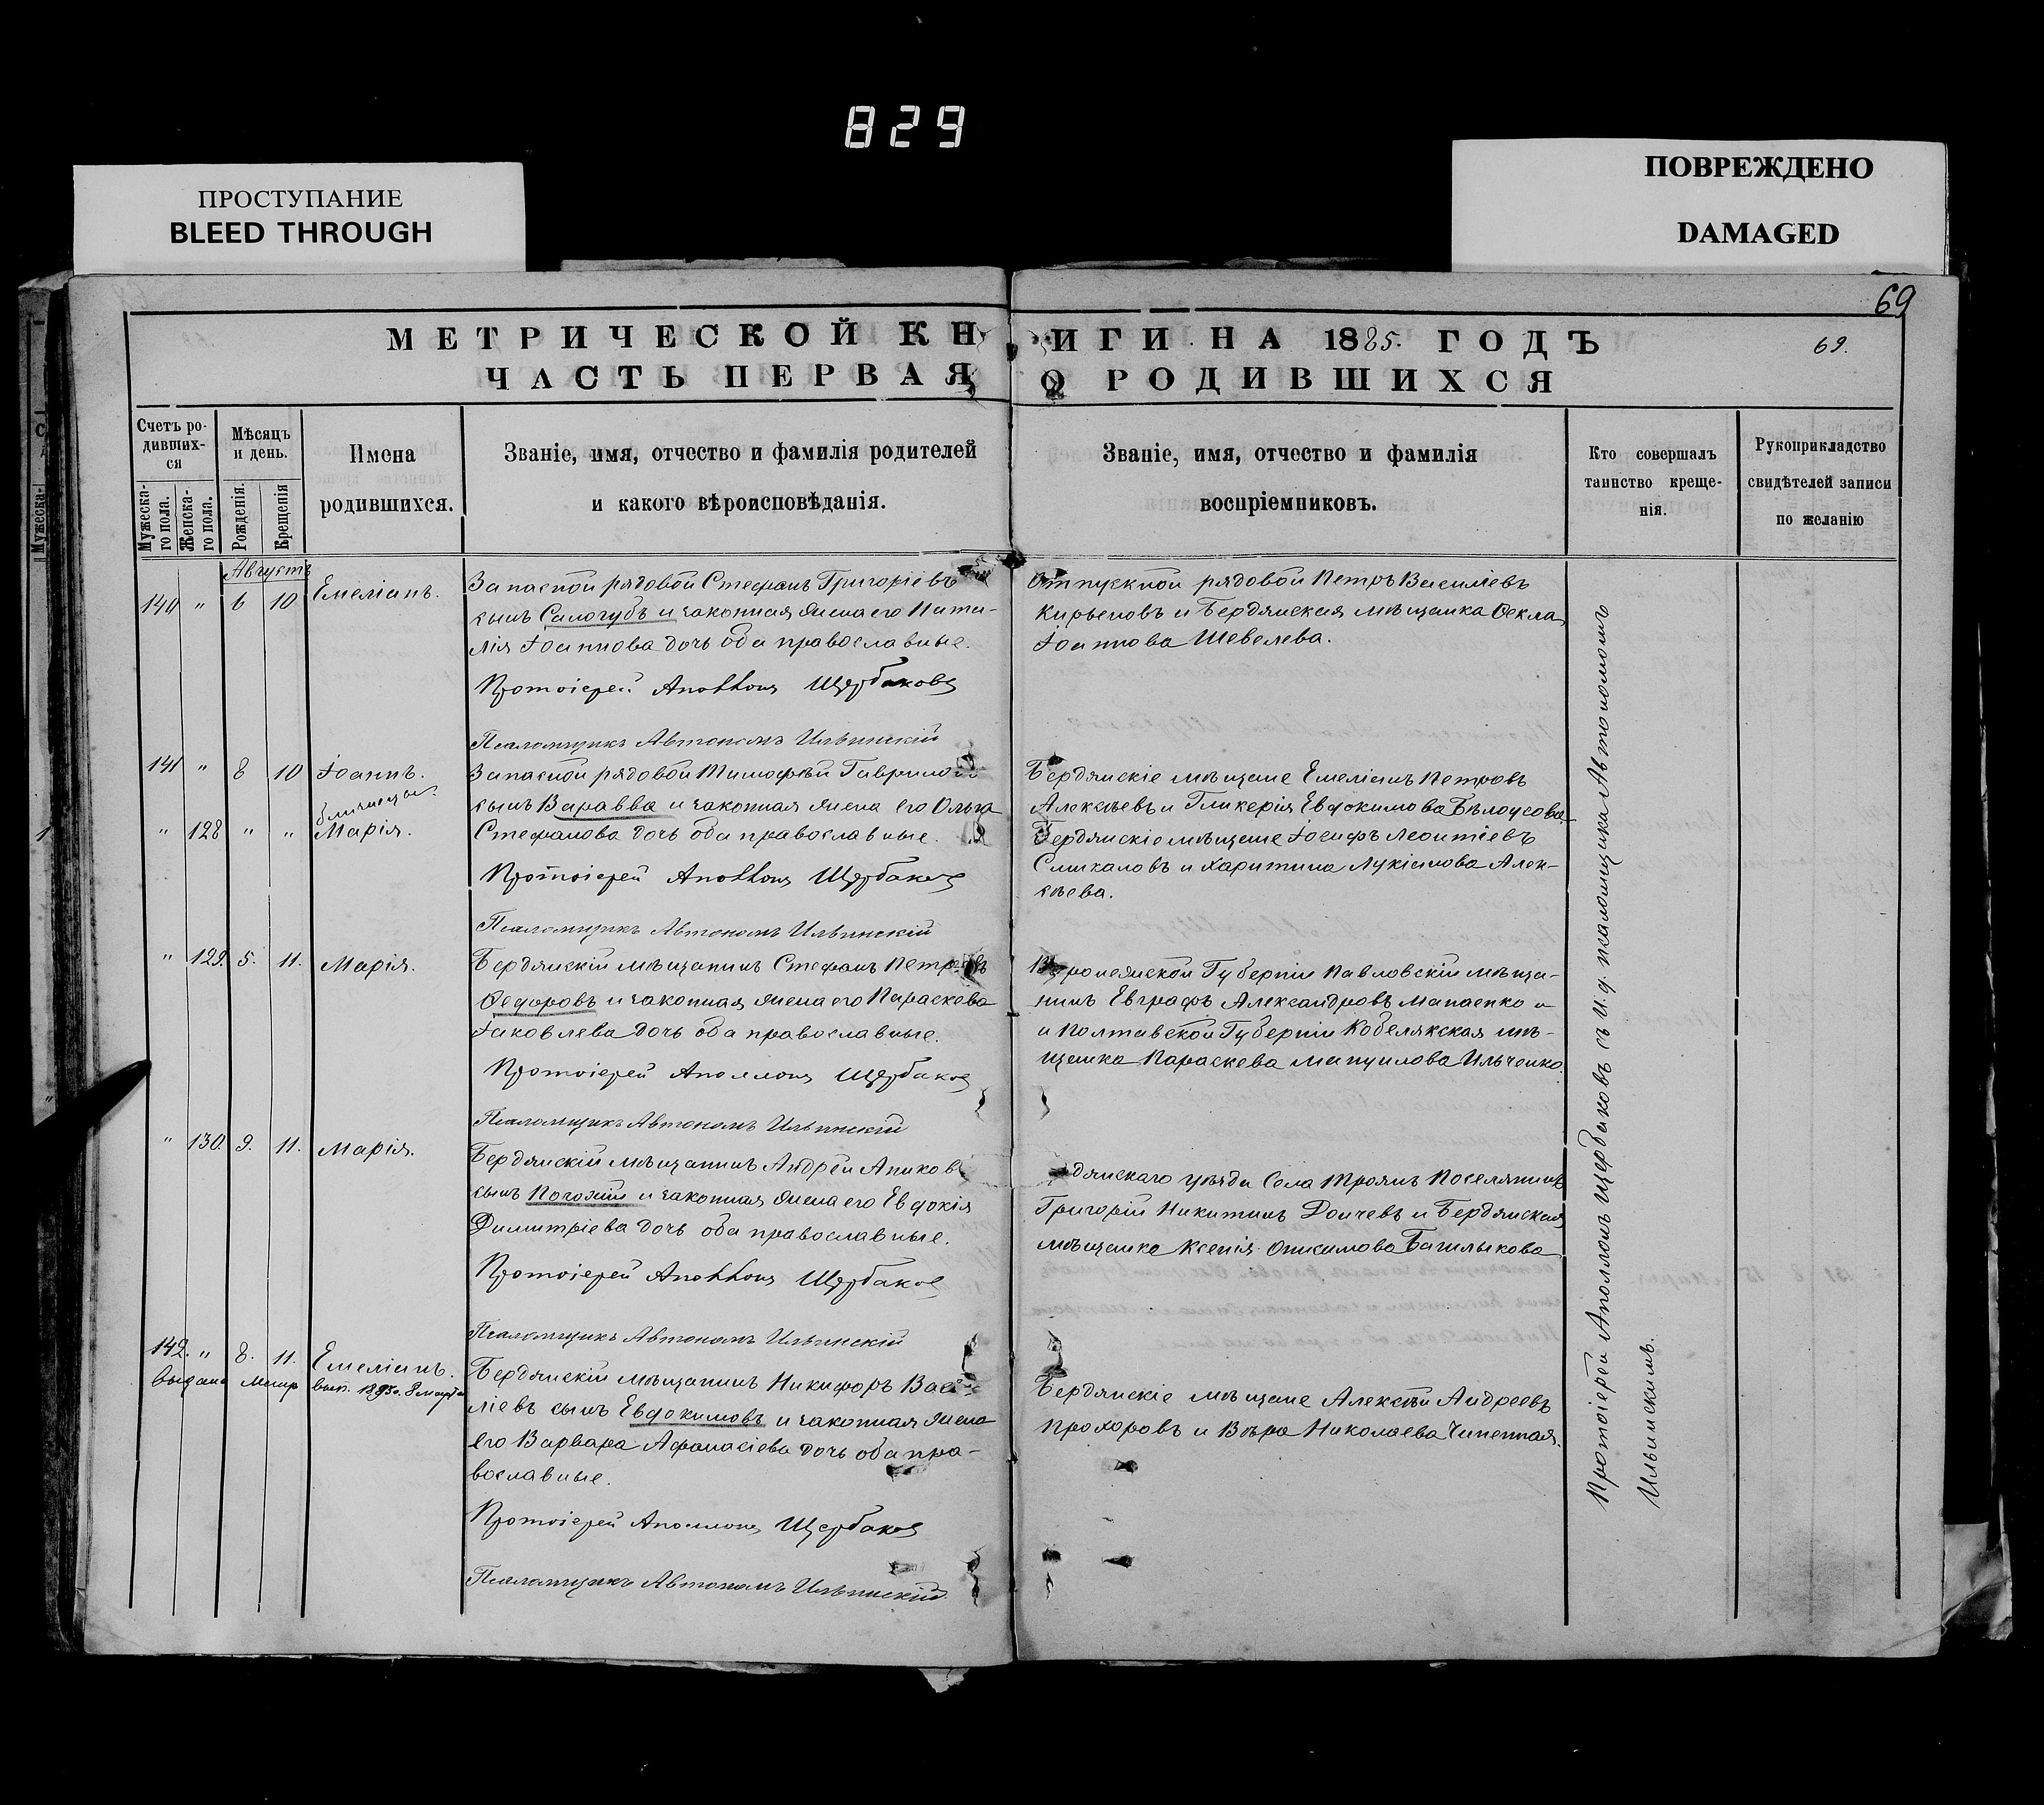 829
ПРОСТУПАНИЕ
BLEED THROUGH
ПОВРЕЖДЕНО
DAMAGED
69
МЕТРИЧЕСКОЙ КНИГИ НА 1885. ГОДЪ
69.
ЧАСТЬ ПЕРВАЯ О РОДИВШИХСЯ
Счетъ ро-
дивших-
ся
Мужеска-
го пола.
Женска-
го пола.
Мѣсяцъ
и день.
Рожденія.
Крещенія
Имена
родившихся.
Званіе, имя, отчество и фамилія родителей
и какого вѣроисповѣданія.
Званіе, имя, отчество и фамилія
воспріемниковъ.
Кто совершалъ
таинство креще-
нія.
Рукоприкладство
свидѣтелей записи
по желанію
Августъ
140 " 6 10 Емеліанъ.
Запасной рядовой Стефанъ Григоріевъ
сынъ Самогубъ и законная жена его Ната-
лія Іоаннова дочь оба православные.
Протоіерей Аполлонъ Щербаковъ
Псаломщикъ Автономъ Ильинскій
Отпускной рядовой Петръ Василіевъ
Кирьеновъ и Бердянская мѣщанка Ѳекла
Іоаннова Шевелева.
141 " 8 10 Іоаннъ.
близнецы.
" 128 " " Марія.
Запасной рядовой Тимофѣй Гаврилов
сынъ Варавва и законная жена его Ольга
Стефанова дочь оба православные.
Протоіерей Аполлонъ Щербаковъ
Псаломщикъ Автономъ Ильинскій
Бердянскіе мѣщане Емеліанъ Петровъ
Алексѣевъ и Гликерія Евдокимова Бѣлоусова
Бердянскіе мѣщане Іосифъ Леонтіевъ
Слюкаловъ и Харитина Лукіанова Алек-
сѣева.
" 129. 5. 11. Марія.
Бердянскій мѣщанинъ Стефанъ Петровъ
Ѳедоровъ и законная жена его Параскева
Іаковлева дочь оба православные.
Протоіерей Аполлонъ Щербаковъ
Псаломщикъ Автономъ Ильинскій
Воронежской Губерніи Павловскій мѣща-
нинъ Евграфъ Александровъ Манаенко и
и Полтавской Губерніи Кобелякская мѣ-
щанка Параскева Мануилова Ильченко.
" 130. 9. 11. Марія.
Бердянскій мѣщанинъ Андрей Аников
сынъ Погожій и законная жена его Евдокія
Димитріева дочь оба православные.
Протоіерей Аполлонъ Щербаковъ
Псаломщикъ Автономъ Ильинскій
дянскаго уѣзда Села Троянъ Поселянинъ
Григорій Никитинъ Дончевъ и Бердянская
мѣщанка Ксенія Онисимова Башлыкова
142. " 8. 11. Емеліанъ.
Выдана Метр вып. 1895г. 8 марта
Бердянскій мѣщанинъ Никифоръ Васи-
ліевъ сынъ Евдокимовъ и законная жена
его Варвара Афанасіева дочь оба пра-
вославные.
Протоіерей Аполлонъ Щербаковъ
Псаломщикъ Автономъ Ильинскій
Бердянскіе мѣщане Алексѣй Андреевъ
Прохоровъ и Вѣра Николаева Чипенная.
Протоіерей Аполлонъ Щербаковъ съ И.д. псаломщика Автономомъ
Ильинскимъ.